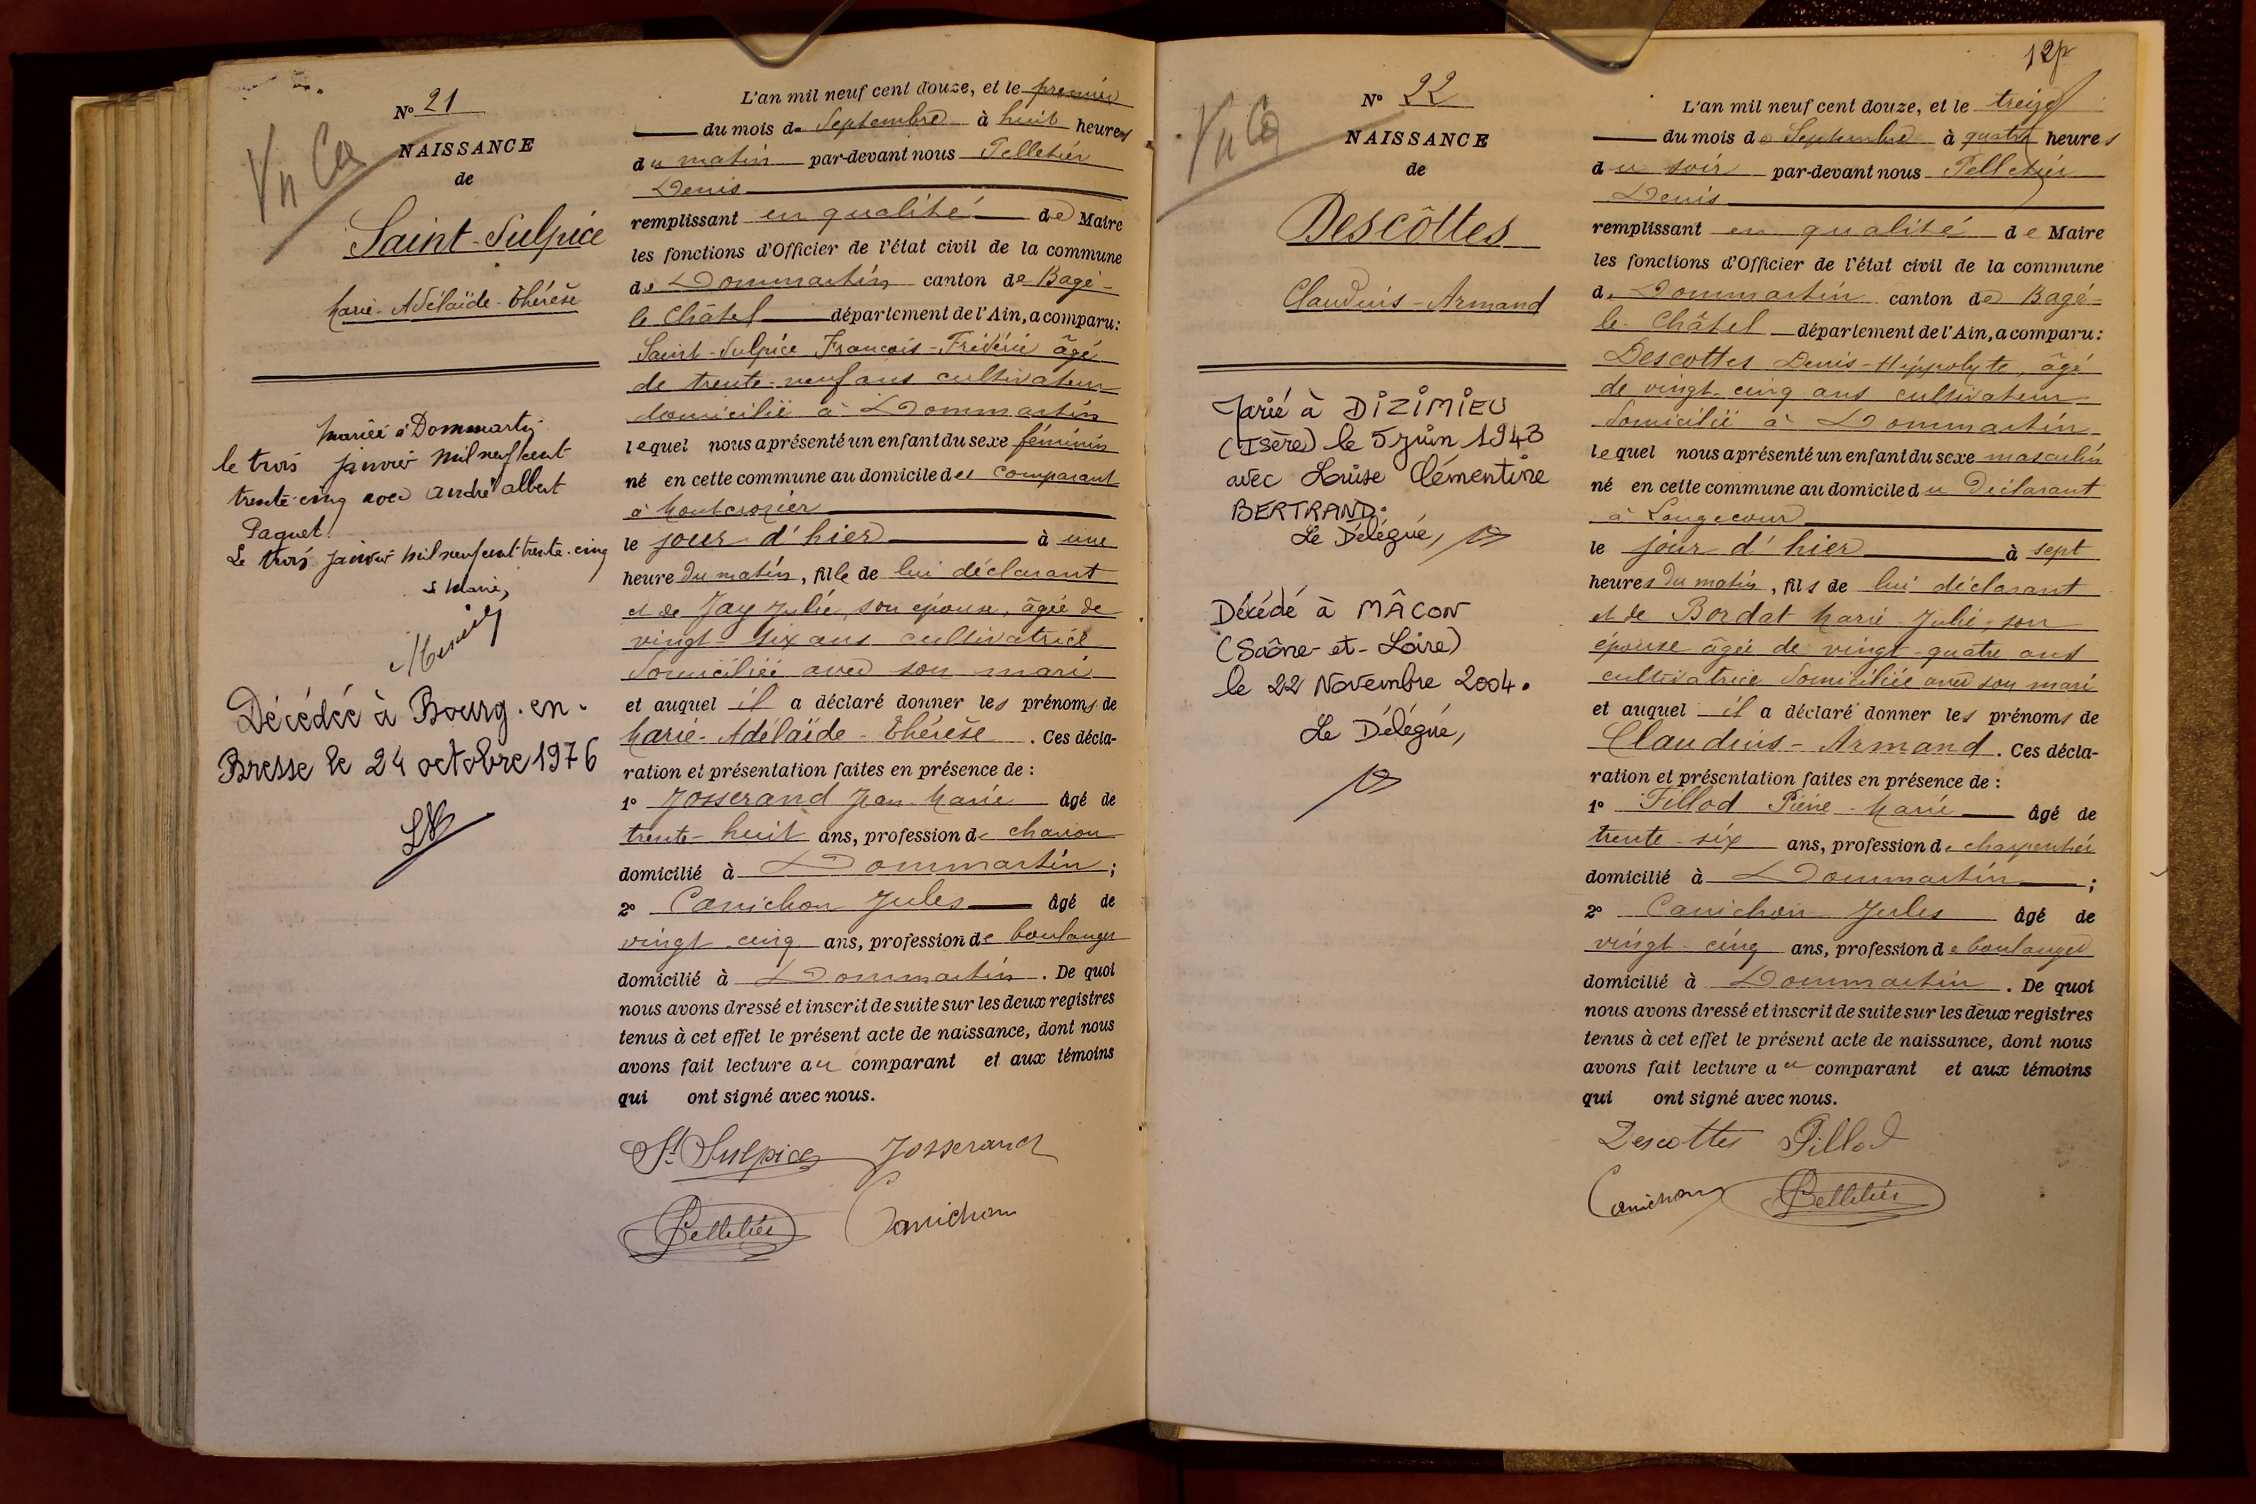 N° 21
NAISSANCE
de
Saint-Sulpice
Marie-Adélaïde-Thérèse
Mariée à Dommartin
le trois janvier mil neuf cent
trente-cinq avec André Albert
Paquet
Le trois janvier mil neuf cent trente-cinq
Le Maire,
Décédée à Bourg-en-
Bresse le 24 octobre 1976
L'an mil neuf cent douze, et le premier
du mois de Septembre à huit heures
du matin par-devant nous Pelletier
Denis
remplissant en qualité de Maire
les fonctions d'Officier de l'état civil de la commune
de Dommartin canton de Bagé-
le Châtel département de l'Ain, a comparu:
Saint-Sulpice François-Frédéric âgé
de trente-neuf ans cultivateur
domicilié à Dommartin
lequel nous a présenté un enfant du sexe féminin
né en cette commune au domicile des comparant
à Montcrozier
le jour d'hier à une
heure du matin, fille de lui déclarant
et de Jay Julie, son épouse, âgée de
vingt-six ans cultivatrice
domiciliée avec son mari
et auquel il a déclaré donner les prénoms de
Marie-Adélaïde-Thérèse. Ces décla-
ration et présentation faites en présence de :
1° Josserand Jean-Marie âgé de
trente-huit ans, profession de charron
domicilié à Dommartin ;
2° Canichon Jules âgé de
vingt cinq ans, profession de boulanger
domicilié à Dommartin. De quoi
nous avons dressé et inscrit de suite sur les deux registres
tenus à cet effet le présent acte de naissance, dont nous
avons fait lecture au comparant et aux témoins
qui ont signé avec nous.
St Sulpice Josserand
Pelletier Canichon
12
N° 22
NAISSANCE
de
Descôttes
Claudius-Armand
Marié à DIZIMIEU
(Isère) le 5 juin 1943
avec Louise Clémentine
BERTRAND.
Le Délégué,
Décédé à MÂCON
(Saône-et-Loire)
le 22 Novembre 2004.
Le Délégué,
L'an mil neuf cent douze, et le treize
du mois de Septembre à quatre heures
du soir par-devant nous Pelletier
Denis
remplissant en qualité de Maire
les fonctions d'Officier de l'état civil de la commune
de Dommartin canton de Bagé-
le Châtel département de l'Ain, a comparu:
Descottes Denis-Hippolyte, âgé
de vingt-cinq ans cultivateur
domicilié à Dommartin
lequel nous a présenté un enfant du sexe masculin
né en cette commune au domicile du Déclarant
à Longecour
le jour d'hier à sept
heures du matin, fils de lui déclarant
et de Bordat Marie-Julie, son
épouse âgée de vingt-quatre ans
cultivatrice domiciliée avec son mari
et auquel il a déclaré donner les prénoms de
Claudius-Armand. Ces décla-
ration et présentation faites en présence de :
1° Tillod Pierre-Marie âgé de
trente-six ans, profession de charpentier
domicilié à Dommartin ;
2° Canichon Jules âgé de
vingt-cinq ans, profession de boulanger
domicilié à Dommartin. De quoi
nous avons dressé et inscrit de suite sur les deux registres
tenus à cet effet le présent acte de naissance, dont nous
avons fait lecture au comparant et aux témoins
qui ont signé avec nous.
Descottes Tillod
Canichon Pelletier